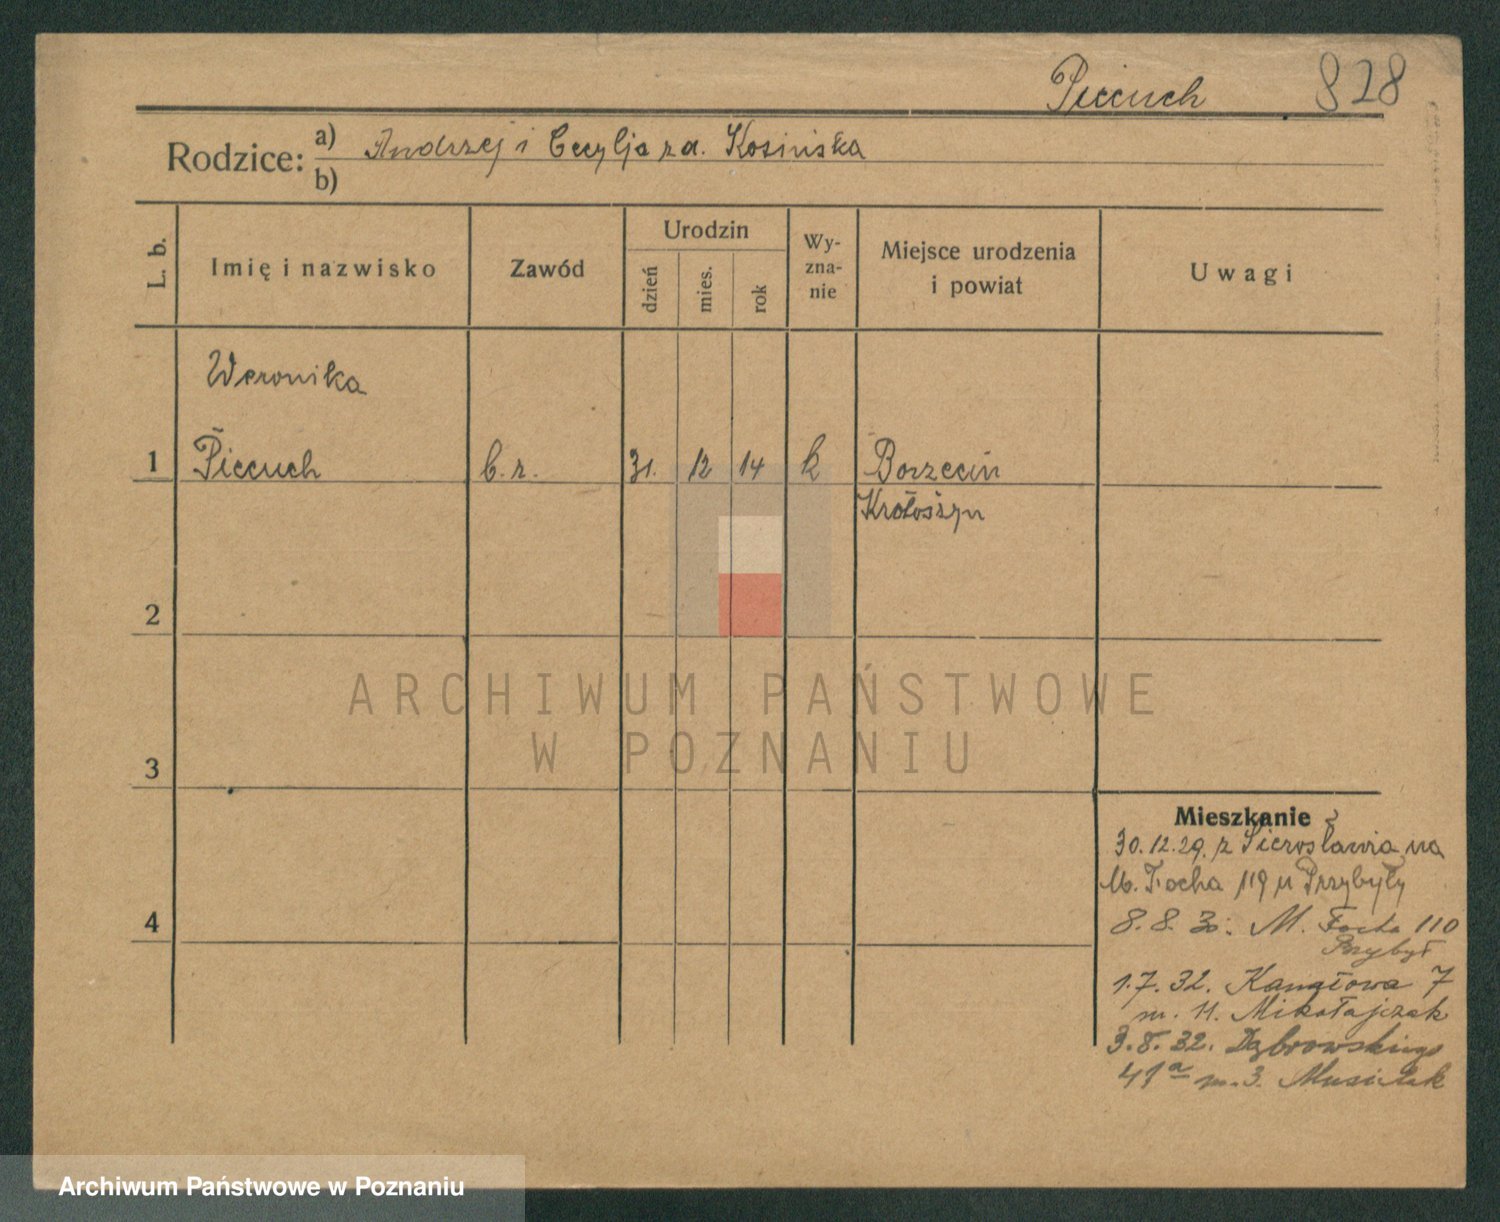 Pieczuch 828
Rodzice: a) Andrzej i Cecylja z d. Kosińska
b)
L. b. Imię i nazwisko Zawód Urodzin dzień mies. rok Wyznanie Miejsce urodzenia i powiat Uwagi
Weronika
1 Piecuch b. z. 31. 12 14 k Borzęcin
Krotoszyn
2
3
4
Mieszkanie
30.12.29. z Sierosławia na
M. Focha 119 u Przybyły
8.8.30. M. Focha 110
Przybył
1.7.32. Kanałowa 7
m. 11. Mikołajczak
3.8.32. Dąbrowskiego
41a m. 3. Musielak
ARCHIWUM PAŃSTWOWE
W POZNANIU
Archiwum Państwowe w Poznaniu